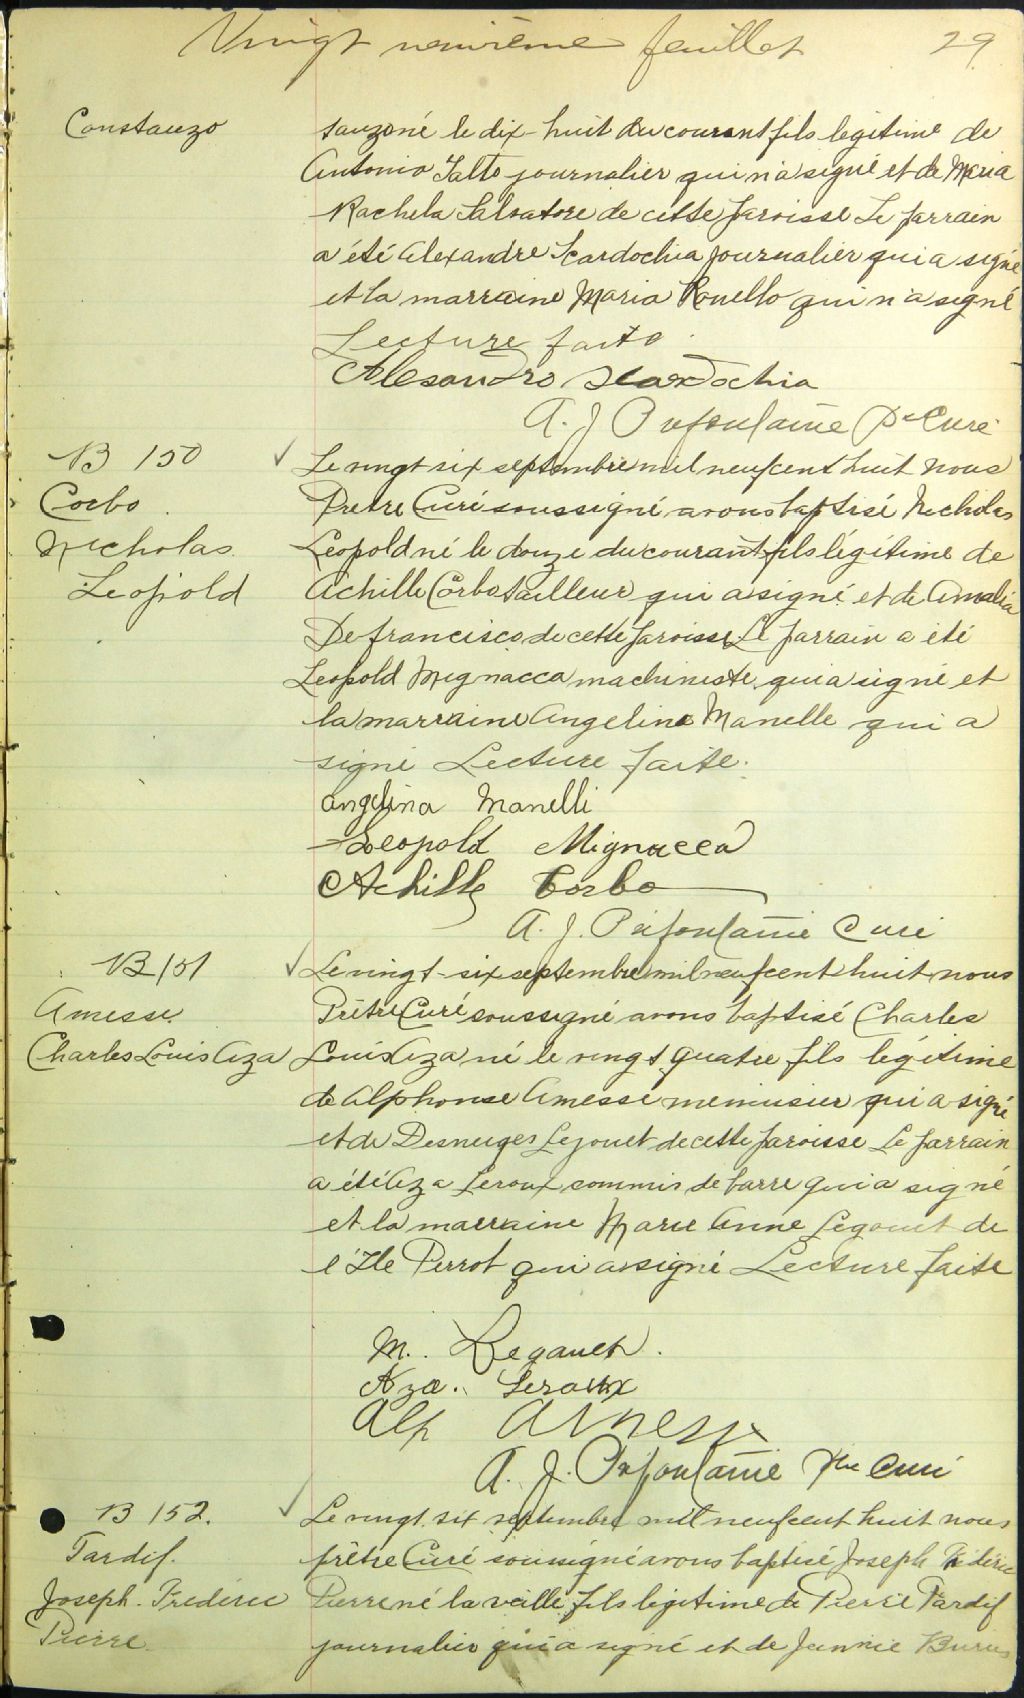 Vingt neuvième feuillet 29
Constanzo
tanzo né le dix-huit du courant fils légitime de
Antonio Salto journalier qui n'a signé et de Maria
Rachela Salvatore de cette paroisse Le parrain
a été Alexandre Scardochia journalier qui a signé
et la marraine Maria Ronello qui n'a signé
Lecture faite
Alesandro Scardochia
A. J. Préfontaine Ptre Curé
B 150
Corbo
Nicholas
Leopold
Le vingt six septembre mil neuf cent huit nous
Prêtre Curé soussigné avons baptisé Nicholas
Leopold né le douze du courant fils légitime de
Achille Corbo tailleur qui a signé et de Amalia
Defrancisco de cette paroisse Le parrain a été
Leopold Mignacca machiniste qui a signé et
la marraine Angelina Manelle qui a
signé Lecture faite.
Angelina Manelli
Leopold Mignacca
Achille Corbo
A. J. Préfontaine Curé
B 151
Amesse
Charles Louis Aza
Le vingt-six septembre mil neuf cent huit nous
Prêtre Curé soussigné avons baptisé Charles
Louis Aza né le vingt quatre fils légitime
de Alphonse Amesse menuisier qui a signé
et de Desneiges Legouet de cette paroisse Le parrain
a été Aza Leroux commis de barre qui a signé
et la marraine Marie Anne Legouet de
l'Ile Perrot qui a signé Lecture faite
M. Legault.
Aza. Leroux
Alp Amesse
A. J. Préfontaine Ptre Curé
B 152.
Tardif.
Joseph. Frédéric
Pierre
Le vingt six septembre mil neuf cent huit nous
prêtre Curé soussigné avons baptisé Joseph Frédéric
Pierre né la veille fils légitime de Pierre Tardif
journalier qui a signé et de Jennie Burns